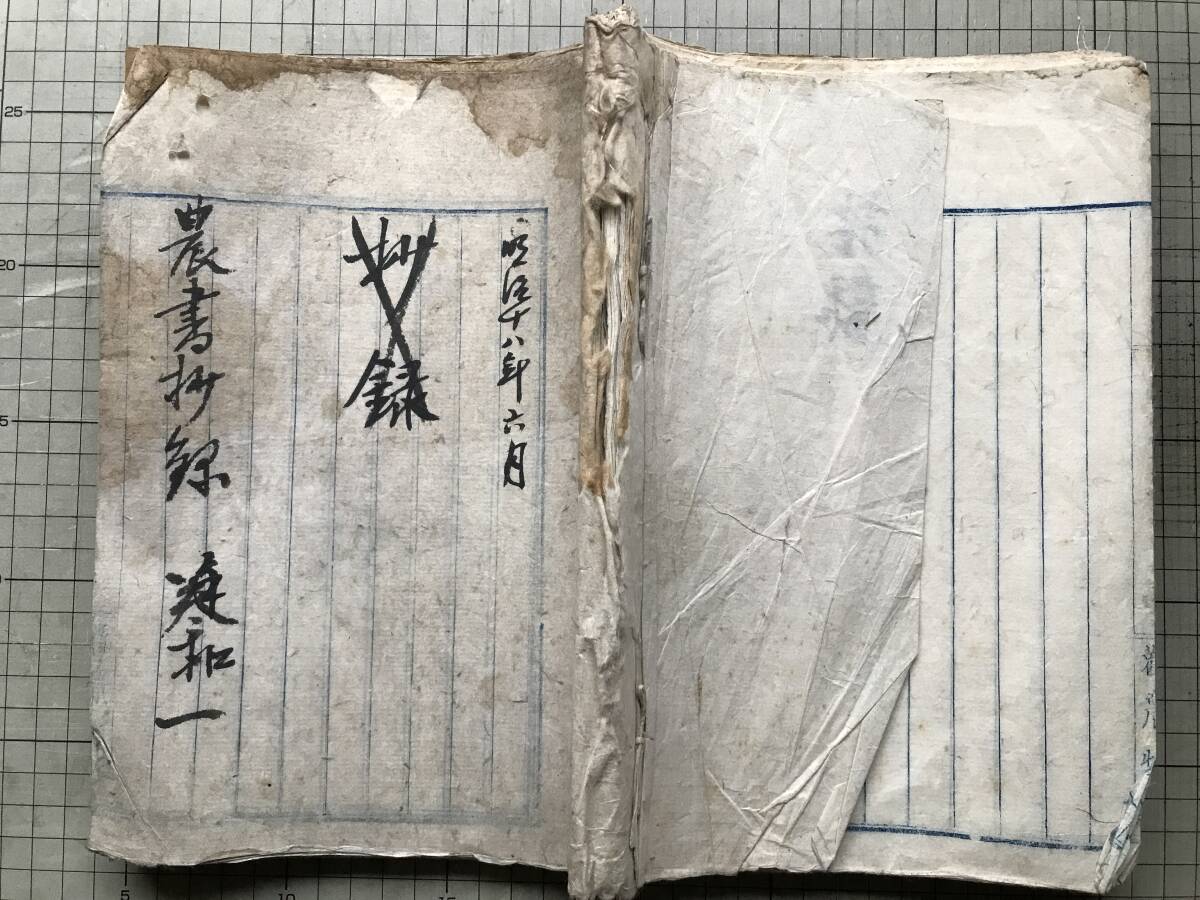 明治十八年六月
抄録
農書抄録 湊和一
25
20
5
5
10
15